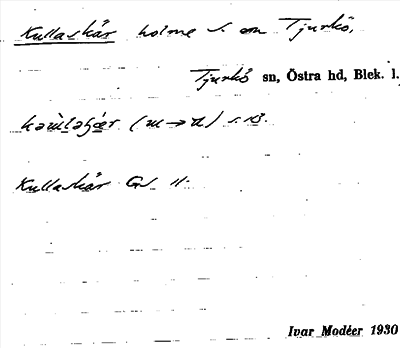 Kullaskär holme S. om Tjurkö.
Tjurkö sn, Östra hd, Blek. l.
(m → u) s. 13.
Kullaskär GS 11.
Ivar Modéer 1930